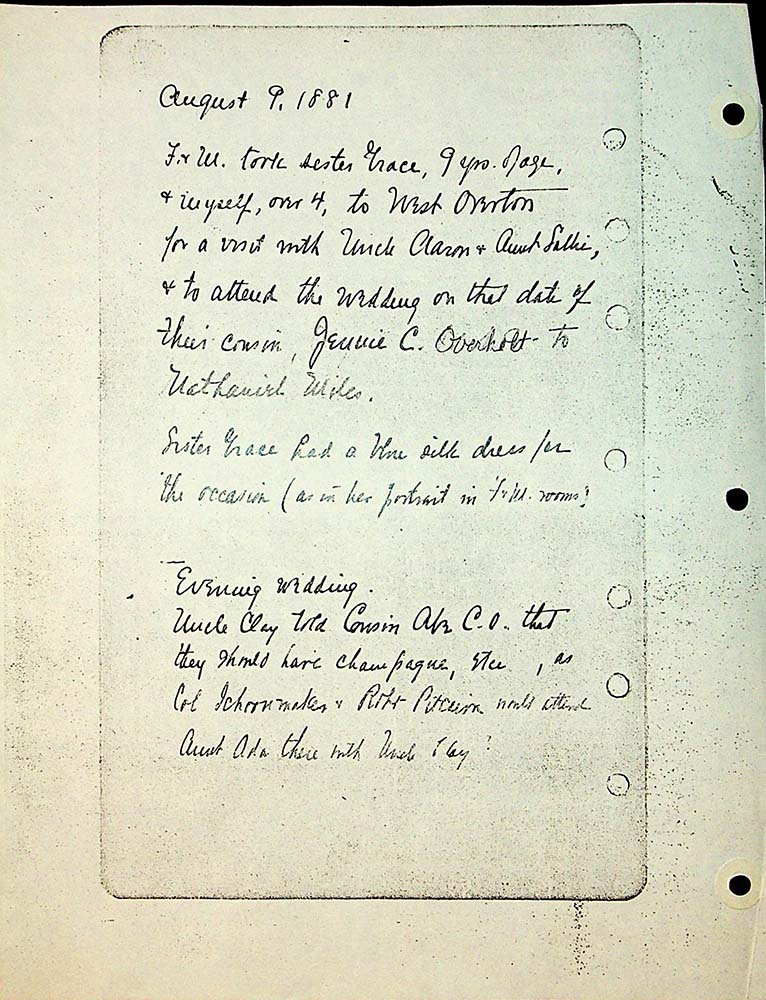 August 9, 1881
F. & M. took sister Grace, 9 yrs. of age,
& myself, over 4, to West Overton
for a visit with Uncle Aaron & Aunt Sallie,
& to attend the wedding on that date of
their cousin, Jennie C. Overholt to
Nathaniel Miles.
Sister Grace had a blue silk dress for
the occasion (as in her portrait in F. & M. rooms)
Evening wedding.
Uncle Clay told Cousin Abr. C. O. that
they should have champagne, etc, as
Col Schoonmaker & Robt Pitcairn would attend
Aunt Ada there with Uncle Clay?